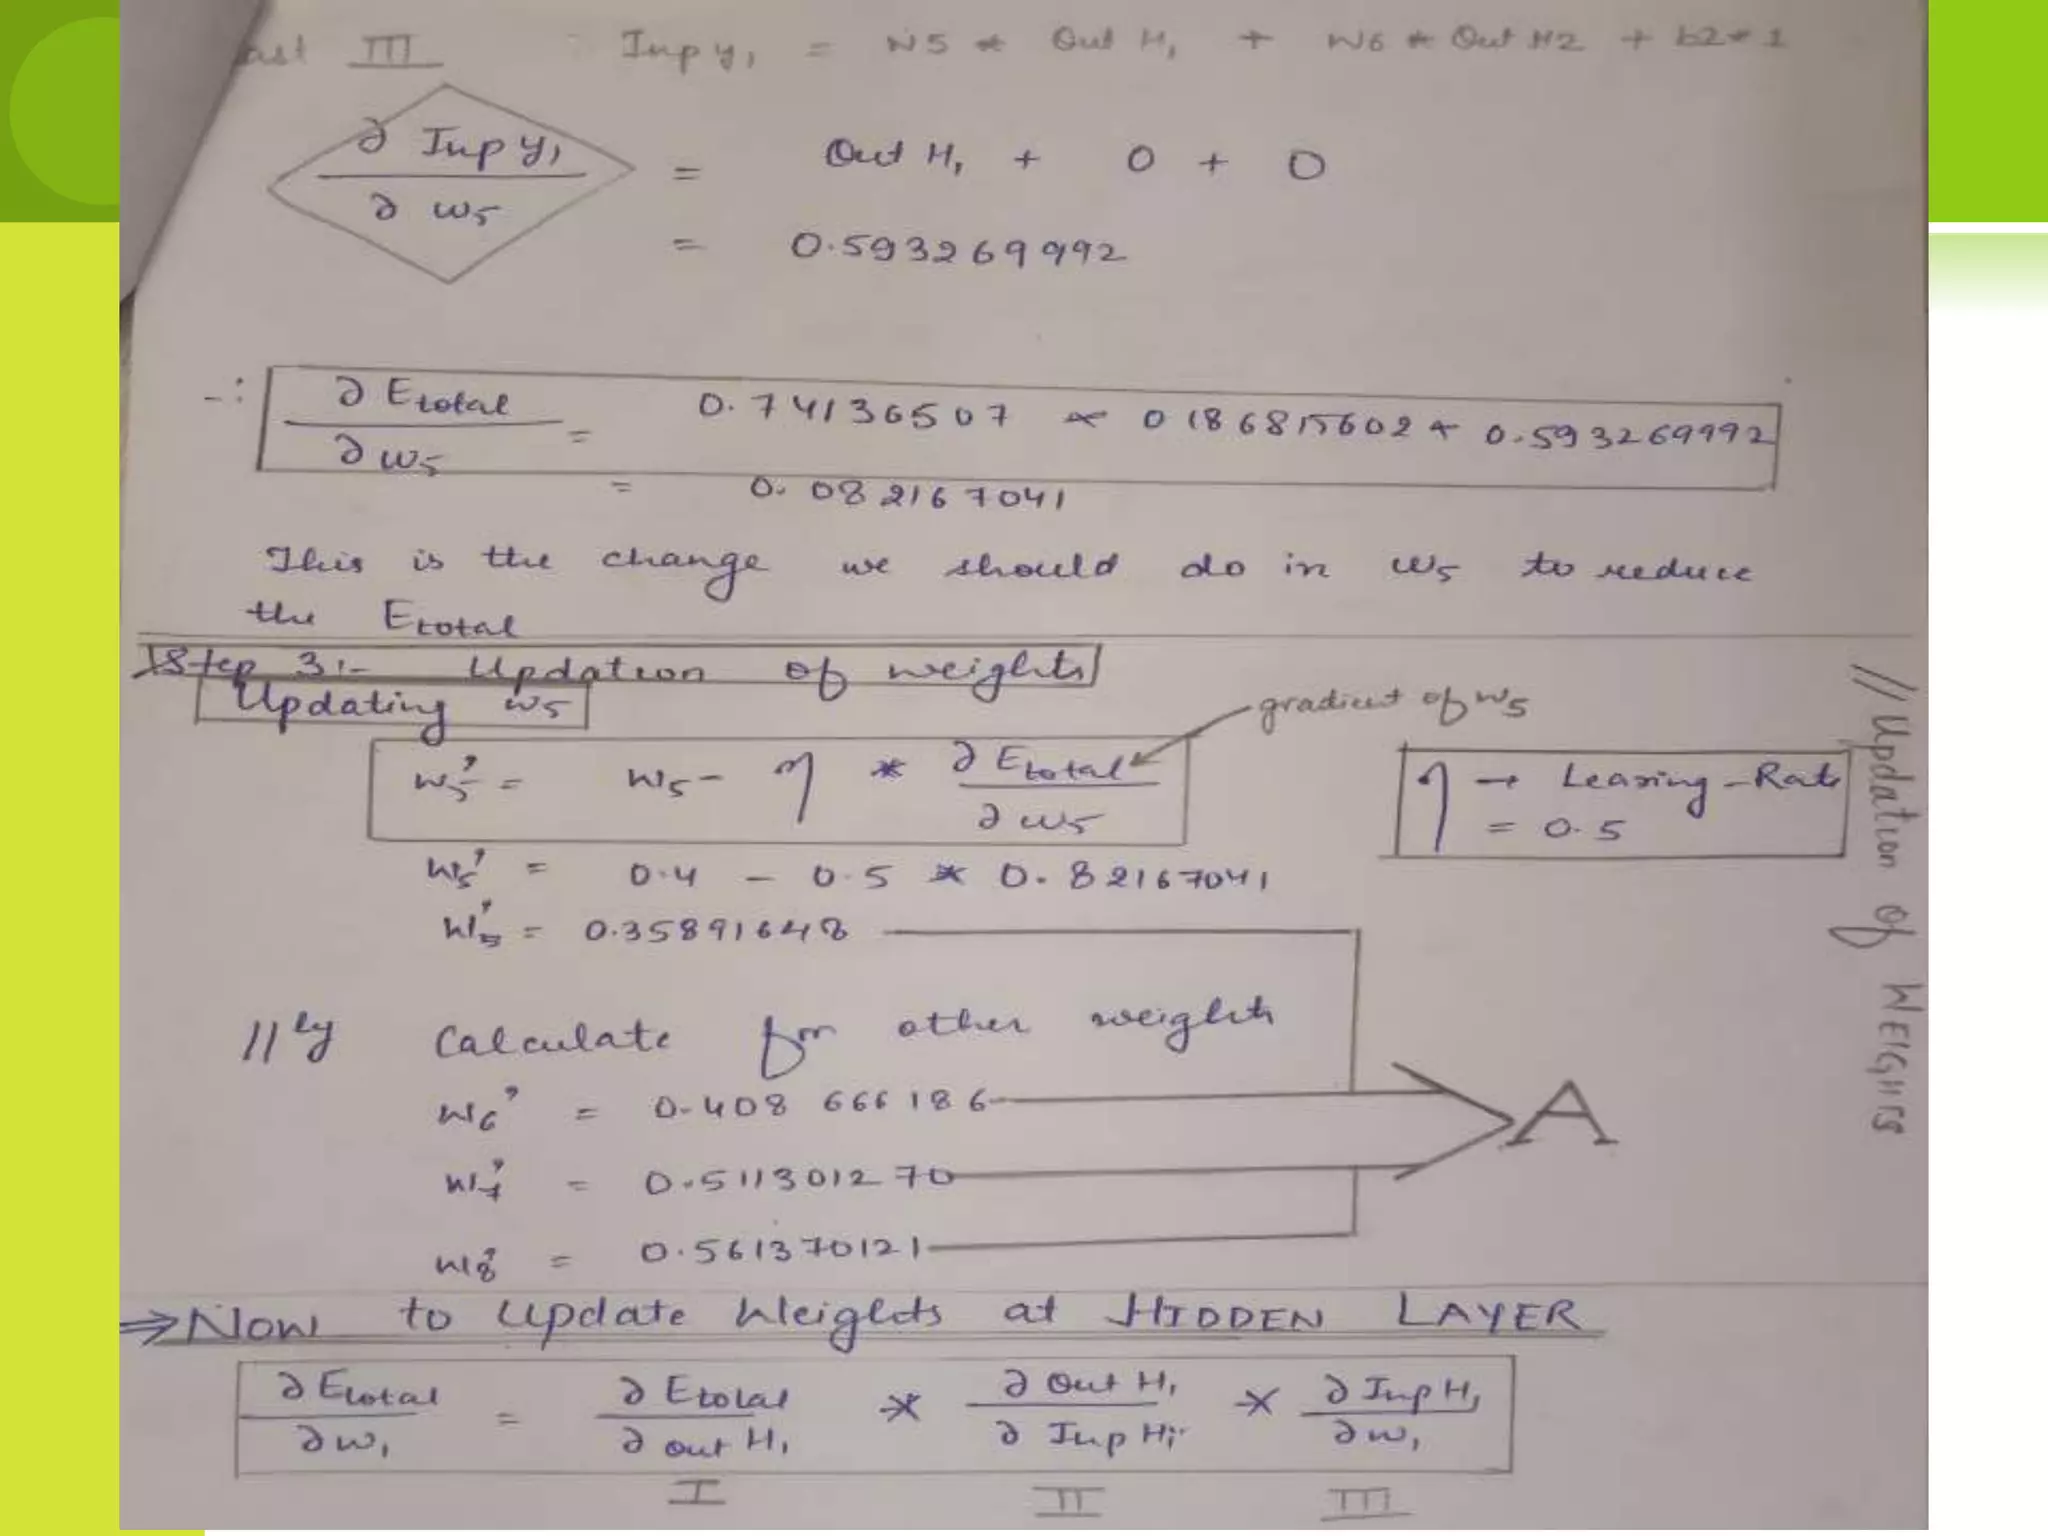 Part III Inp y₁ = W5 * Out H₁ + W6 * Out H2 + b2*1
∂ Inp y₁ / ∂ w5 = Out H₁ + 0 + 0
= 0.593269992
∴ ∂ Etotal / ∂ w5 = 0.74136507 * 0.186815602 * 0.593269992
= 0.082167041
This is the change we should do in w5 to reduce
the Etotal
Step 3:- Updation of weights
Updating w5
gradient of w5
w5' = w5 - η * ∂ Etotal / ∂ w5
η → Learing-Rate
= 0.5
w5' = 0.4 - 0.5 * 0.82167041
w5' = 0.35891648
//ly Calculate for other weights
w6' = 0.408666186
w7' = 0.511301270
w8' = 0.561370121
A
// Updation of WEIGHTS
⇒ Now to update Weights at HIDDEN LAYER
∂ Etotal / ∂ w₁ = ∂ Etotal / ∂ out H₁ * ∂ Out H₁ / ∂ Inp H₁ * ∂ Inp H₁ / ∂ w₁
I II III